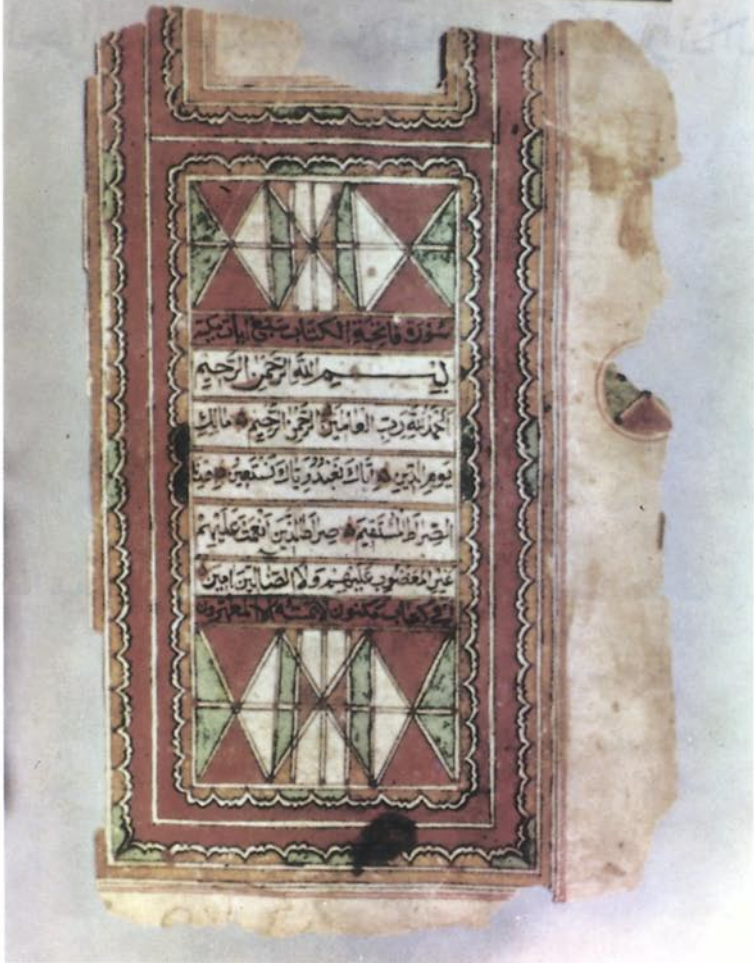 سورة فاتحة الكتاب سبع ايات مكية
بِسْمِ اللَّهِ الرَّحْمٰنِ الرَّحِيمِ
اَلْحَمْدُ لِلَّهِ رَبِّ الْعَالَمِينَ الرَّحْمٰنِ الرَّحِيمِ مَالِكِ
يَوْمِ الدِّينِ اِيَّاكَ نَعْبُدُ وَاِيَّاكَ نَسْتَعِينُ اِهْدِنَا
الصِّرَاطَ الْمُسْتَقِيمَ صِرَاطَ الَّذِينَ اَنْعَمْتَ عَلَيْهِمْ
غَيْرِ الْمَغْضُوبِ عَلَيْهِمْ وَلَا الضَّالِّينَ اٰمِينَ
فى كتاب مكنون لا يمسه الا المطهرون